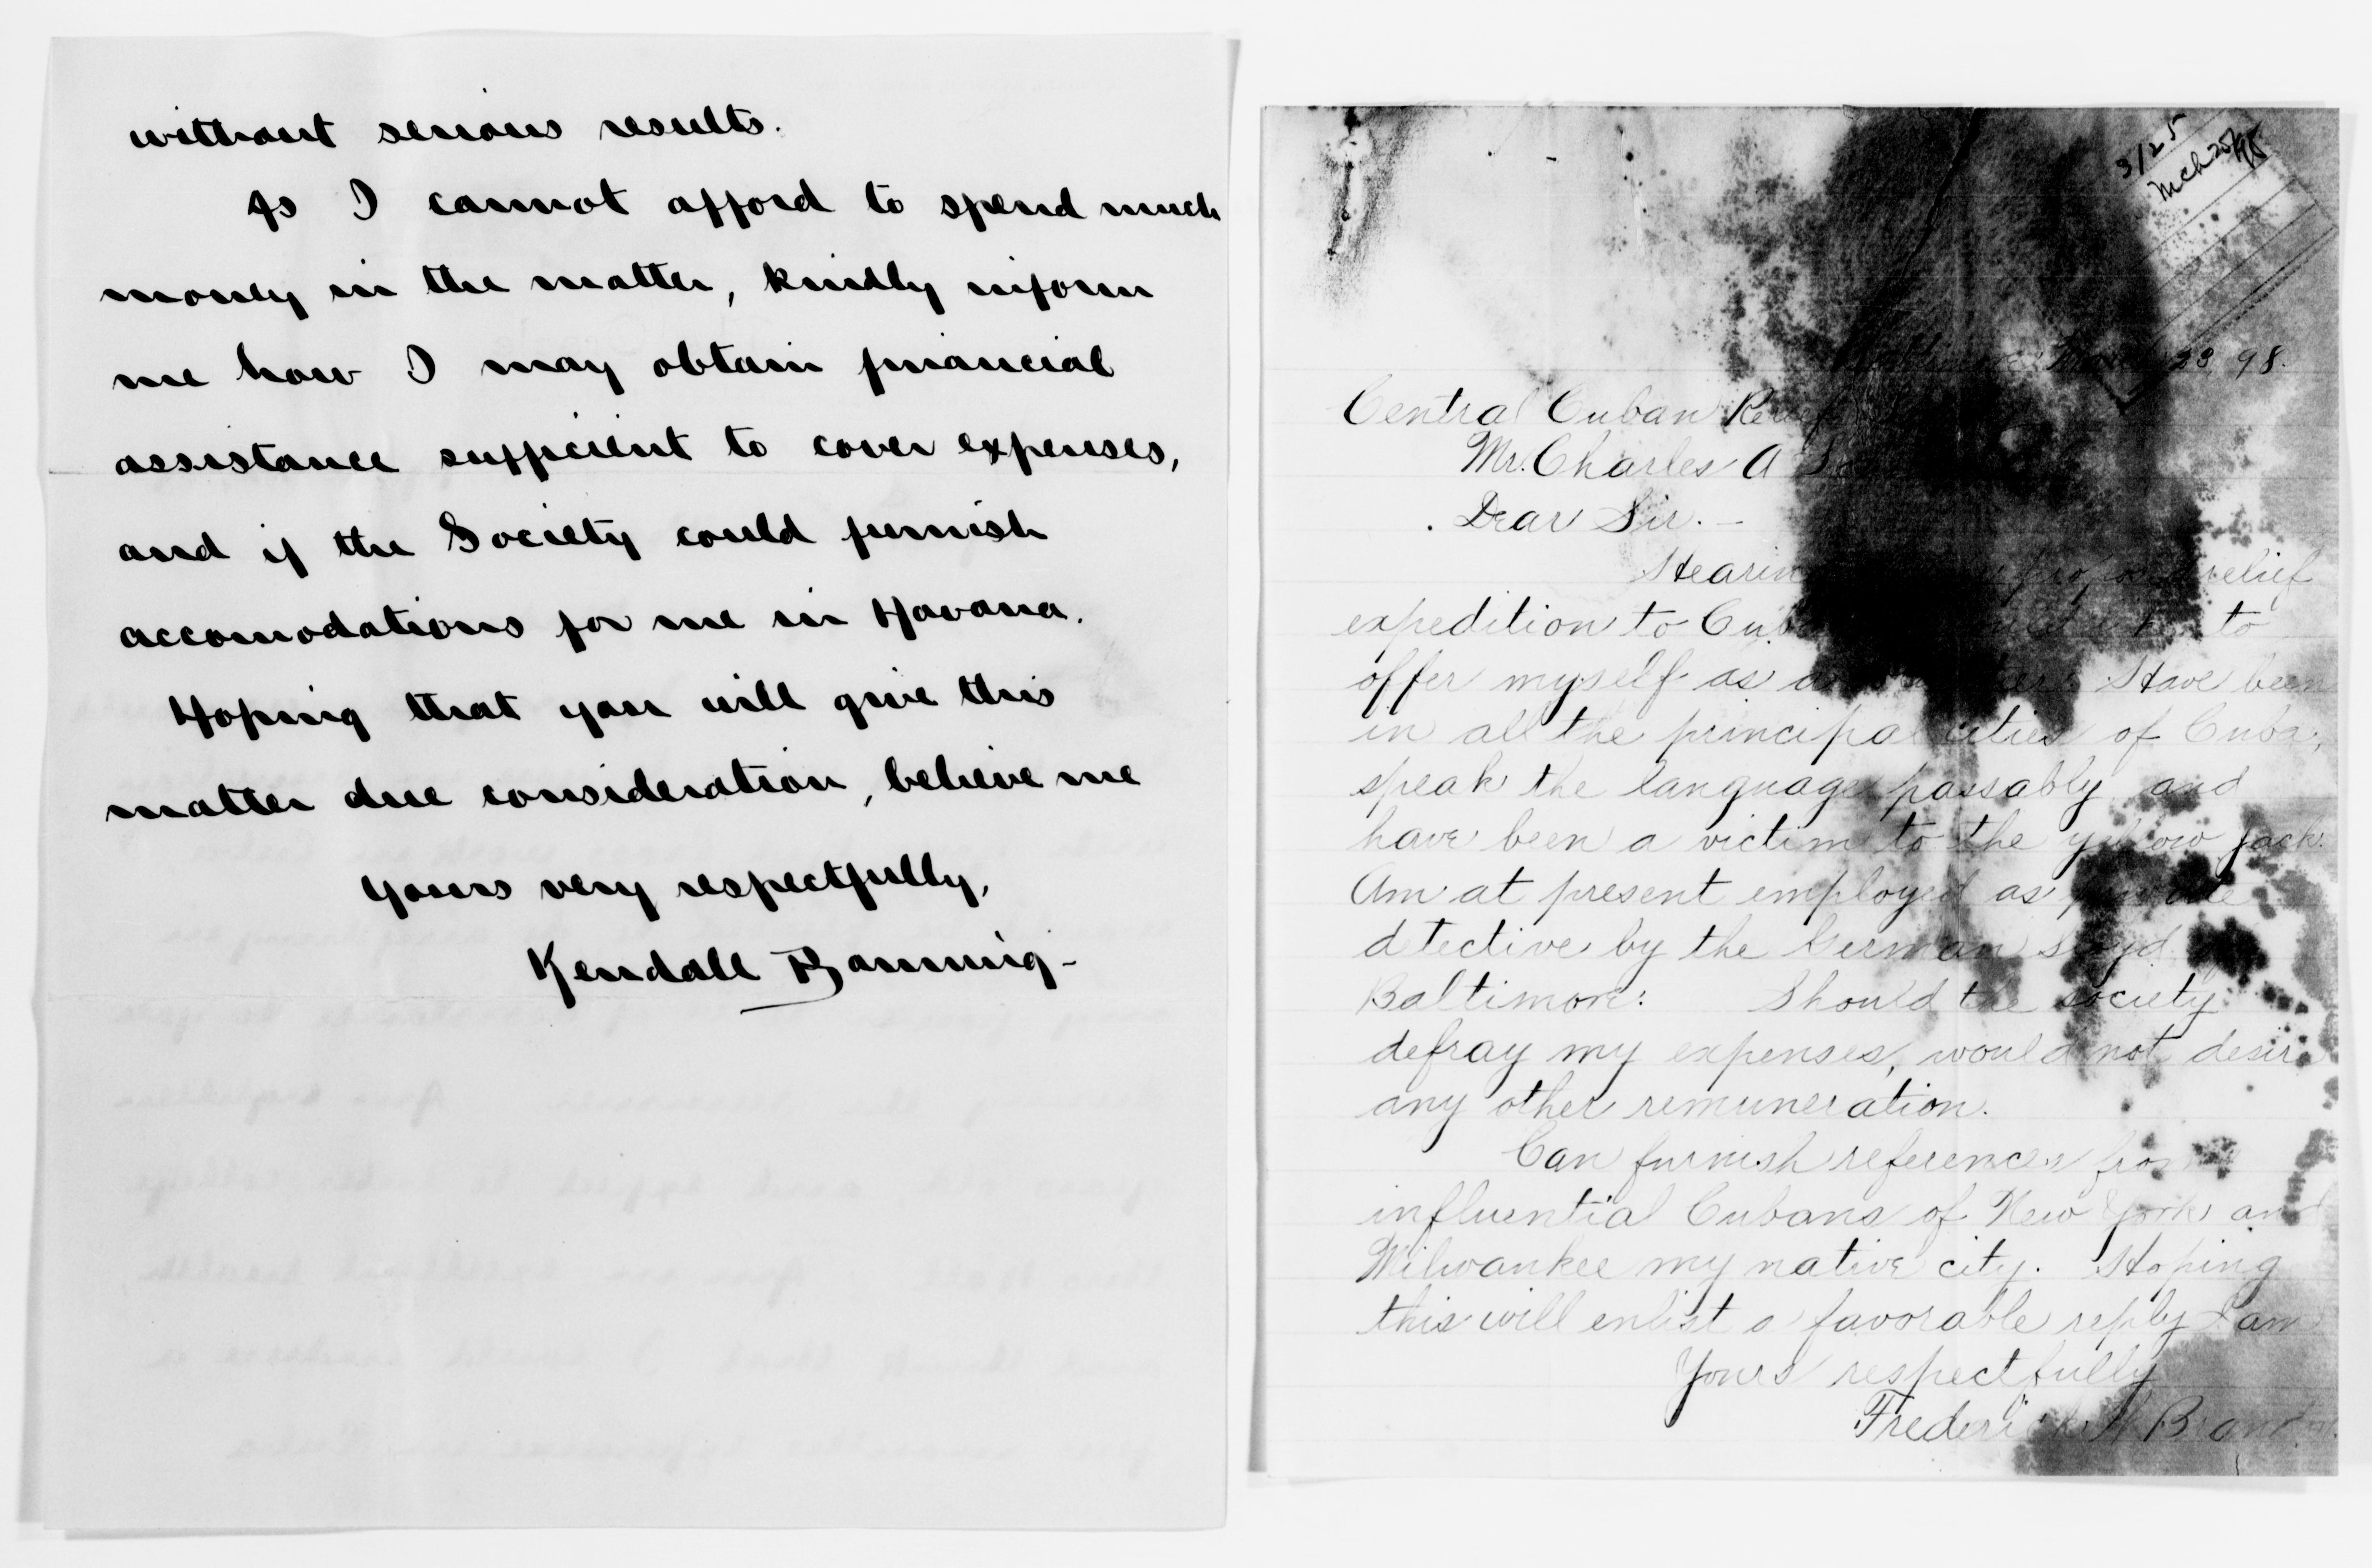 without serious results.
As I cannot afford to spend much
money in the matter, kindly inform
me how I may obtain financial
assistance sufficient to cover expenses,
and if the Society could furnish
accomodations for me in Havana.
Hoping that you will give this
matter due consideration, believe me
Yours very respectfully,
Kendall Banning-
3/25
Mch 25/98
March 23, 98.
Central Cuban Relief
Mr. Charles A
Dear Sir. -
relief
expedition to to
offer myself as Have been
in all the principal cities of Cuba,
speak the language passably and
have been a victim to the yellow jack.
Am at present employed as private
detective by the German
Baltimore. Should the society
defray my expenses, would not desire
any other remuneration.
Can furnish references from
influential Cubans of New York and
Milwaukee my native city. Hoping
this will enlist a favorable reply I am
Yours respectfully
Frederick